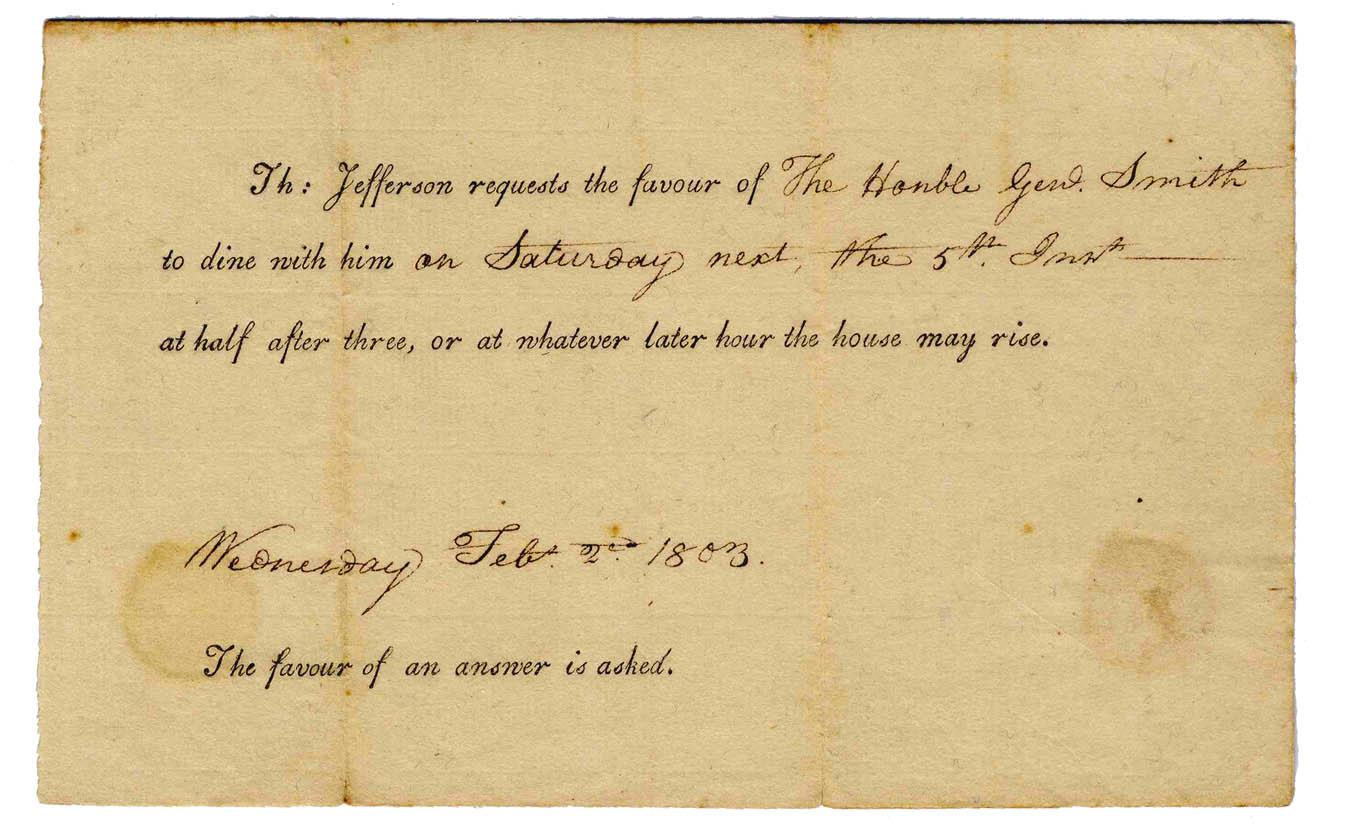 Th: Jefferson requests the favour of The Honble Genl. Smith
to dine with him on Saturday next, the 5th. Inst
at half after three, or at whatever later hour the house may rise.
Wednesday Feby. 2nd. 1803.
The favour of an answer is asked.